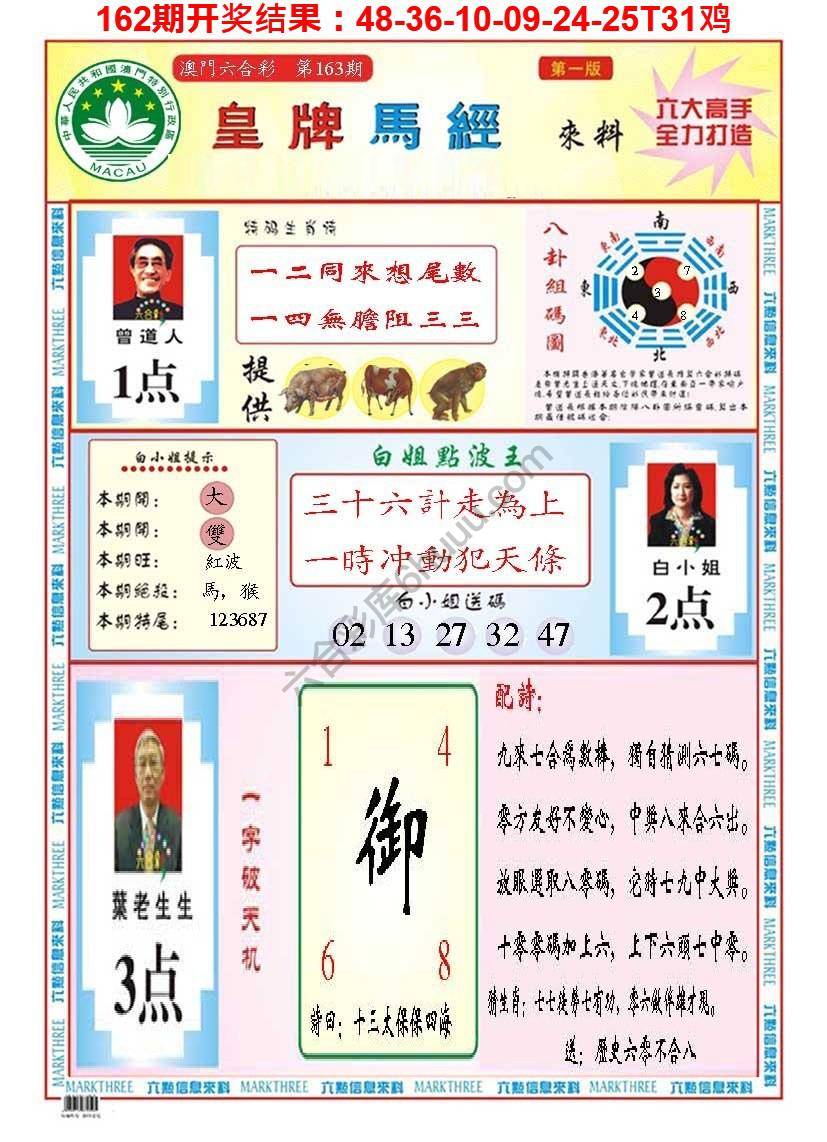 162期开奖结果：48-36-10-09-24-25T31鸡
澳門六合彩 第163期
第一版
中華人民共和國澳門特別行政區
MACAU
皇牌馬經
來料
六大高手
全力打造
曾道人
1点
特码生肖诗
一二同來想尾數
一四無膽阻三三
提供
八卦組碼圖
南
東南
西南
東
西
東北
西北
北
2
7
3
4
8
白小姐提示
本期開： 大
本期開： 雙
本期旺： 紅波
本期絕殺： 馬，猴
本期特尾： 123687
白姐點波王
三十六計走為上
一時冲動犯天條
白小姐送碼
02 13 27 32 47
白小姐
2点
葉老生生
3点
一字破天机
1 4
御
6 8
詩曰：十三太保保四海
配詩：
九來七合為數棒，獨自猜測六七碼。
零方友好不變心，中與八來合六出。
放眼選取八零碼，它時七九中大獎。
十零零碼加上六，上下六頭七中零。
猜生肖：七七徒勞七有功，零六做伴雄才現。
送：歷史六零不合八
六點信息來料
MARKTHREE
六合彩库6hkuu.com